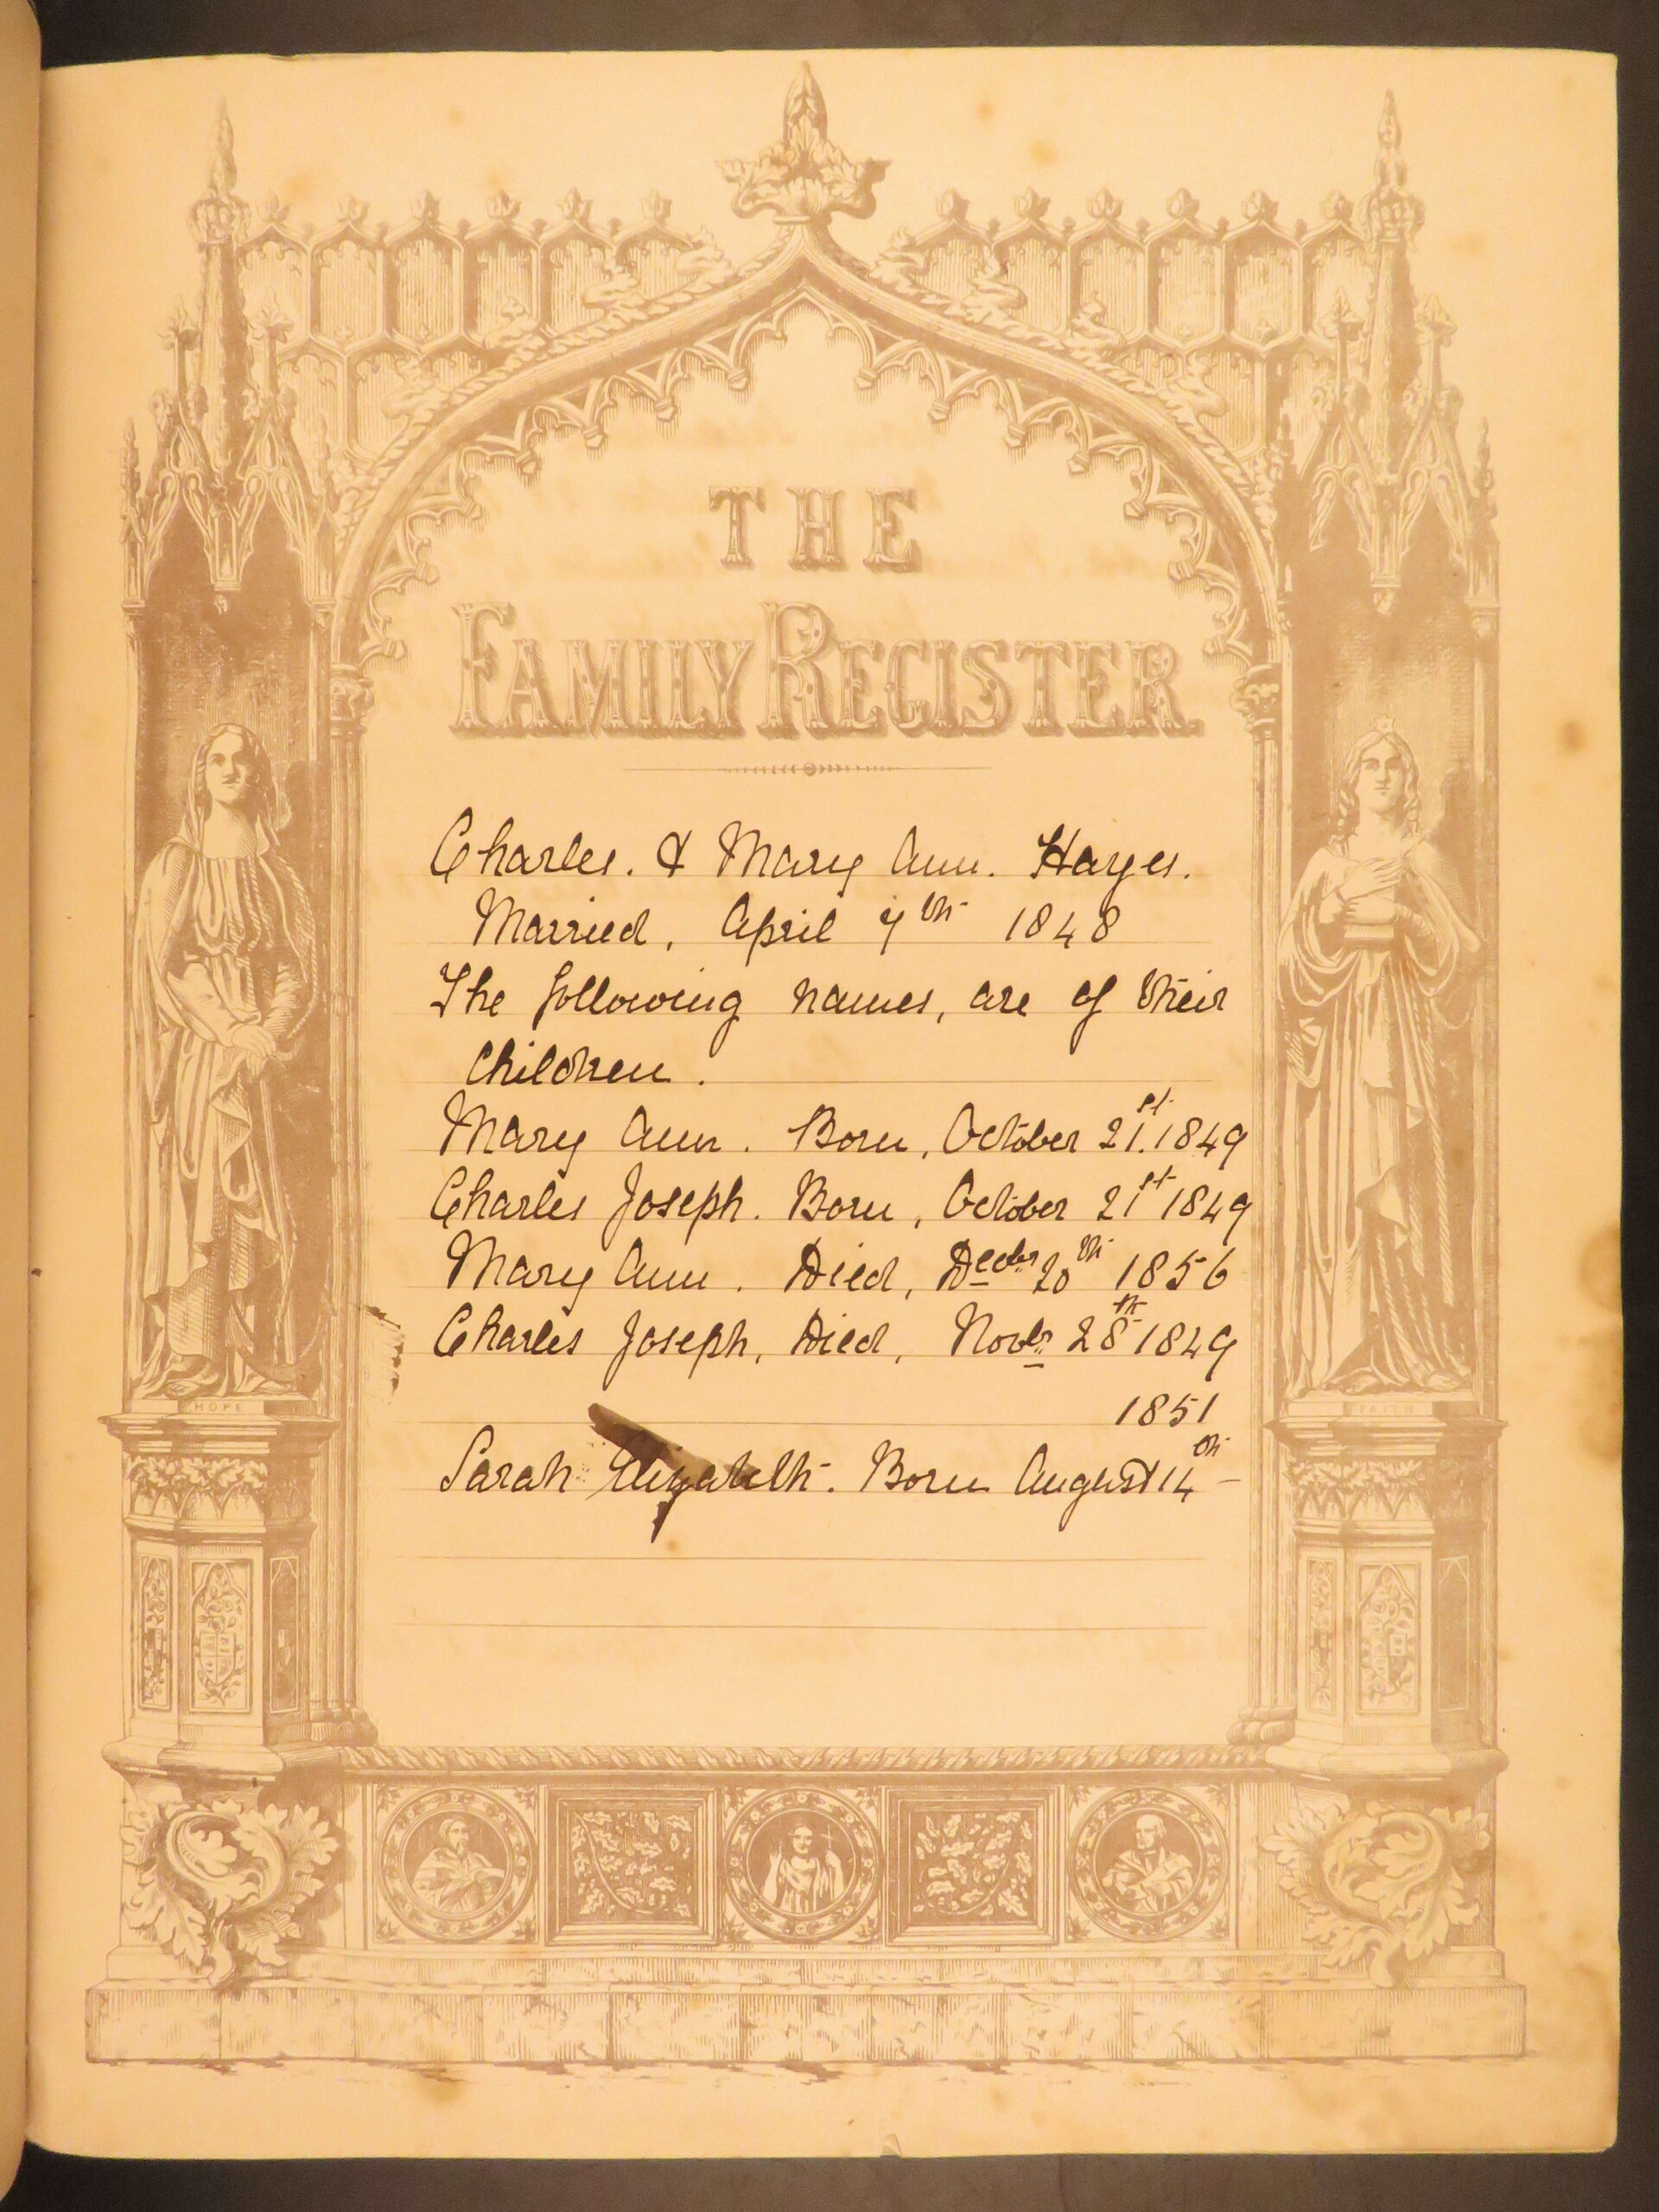 THE
FAMILY REGISTER
Charles. & Mary Ann. Hayes.
Married, April 7th 1848
The following names, are of their
Children.
Mary Ann. Born, October 21st. 1849
Charles Joseph. Born, October 21st 1849
Mary Ann. Died, Decbr 20th 1856
Charles Joseph, Died, Novbr 28th 1849
1851
Sarah Elizabeth. Born August 14th -
HOPE
FAITH